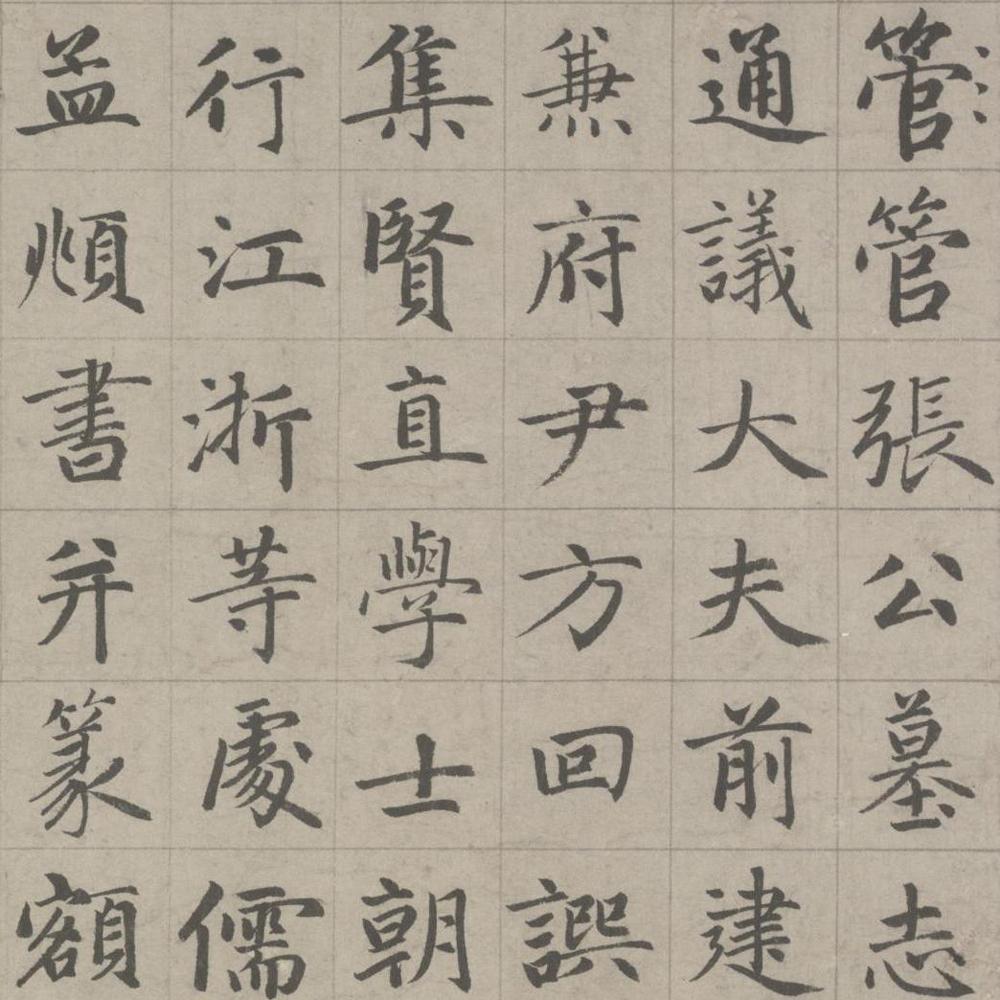 管管張公墓志
通議大夫前建
兼府尹方回譔
集賢直學士朝
行江浙等處儒
孟頫書并篆額